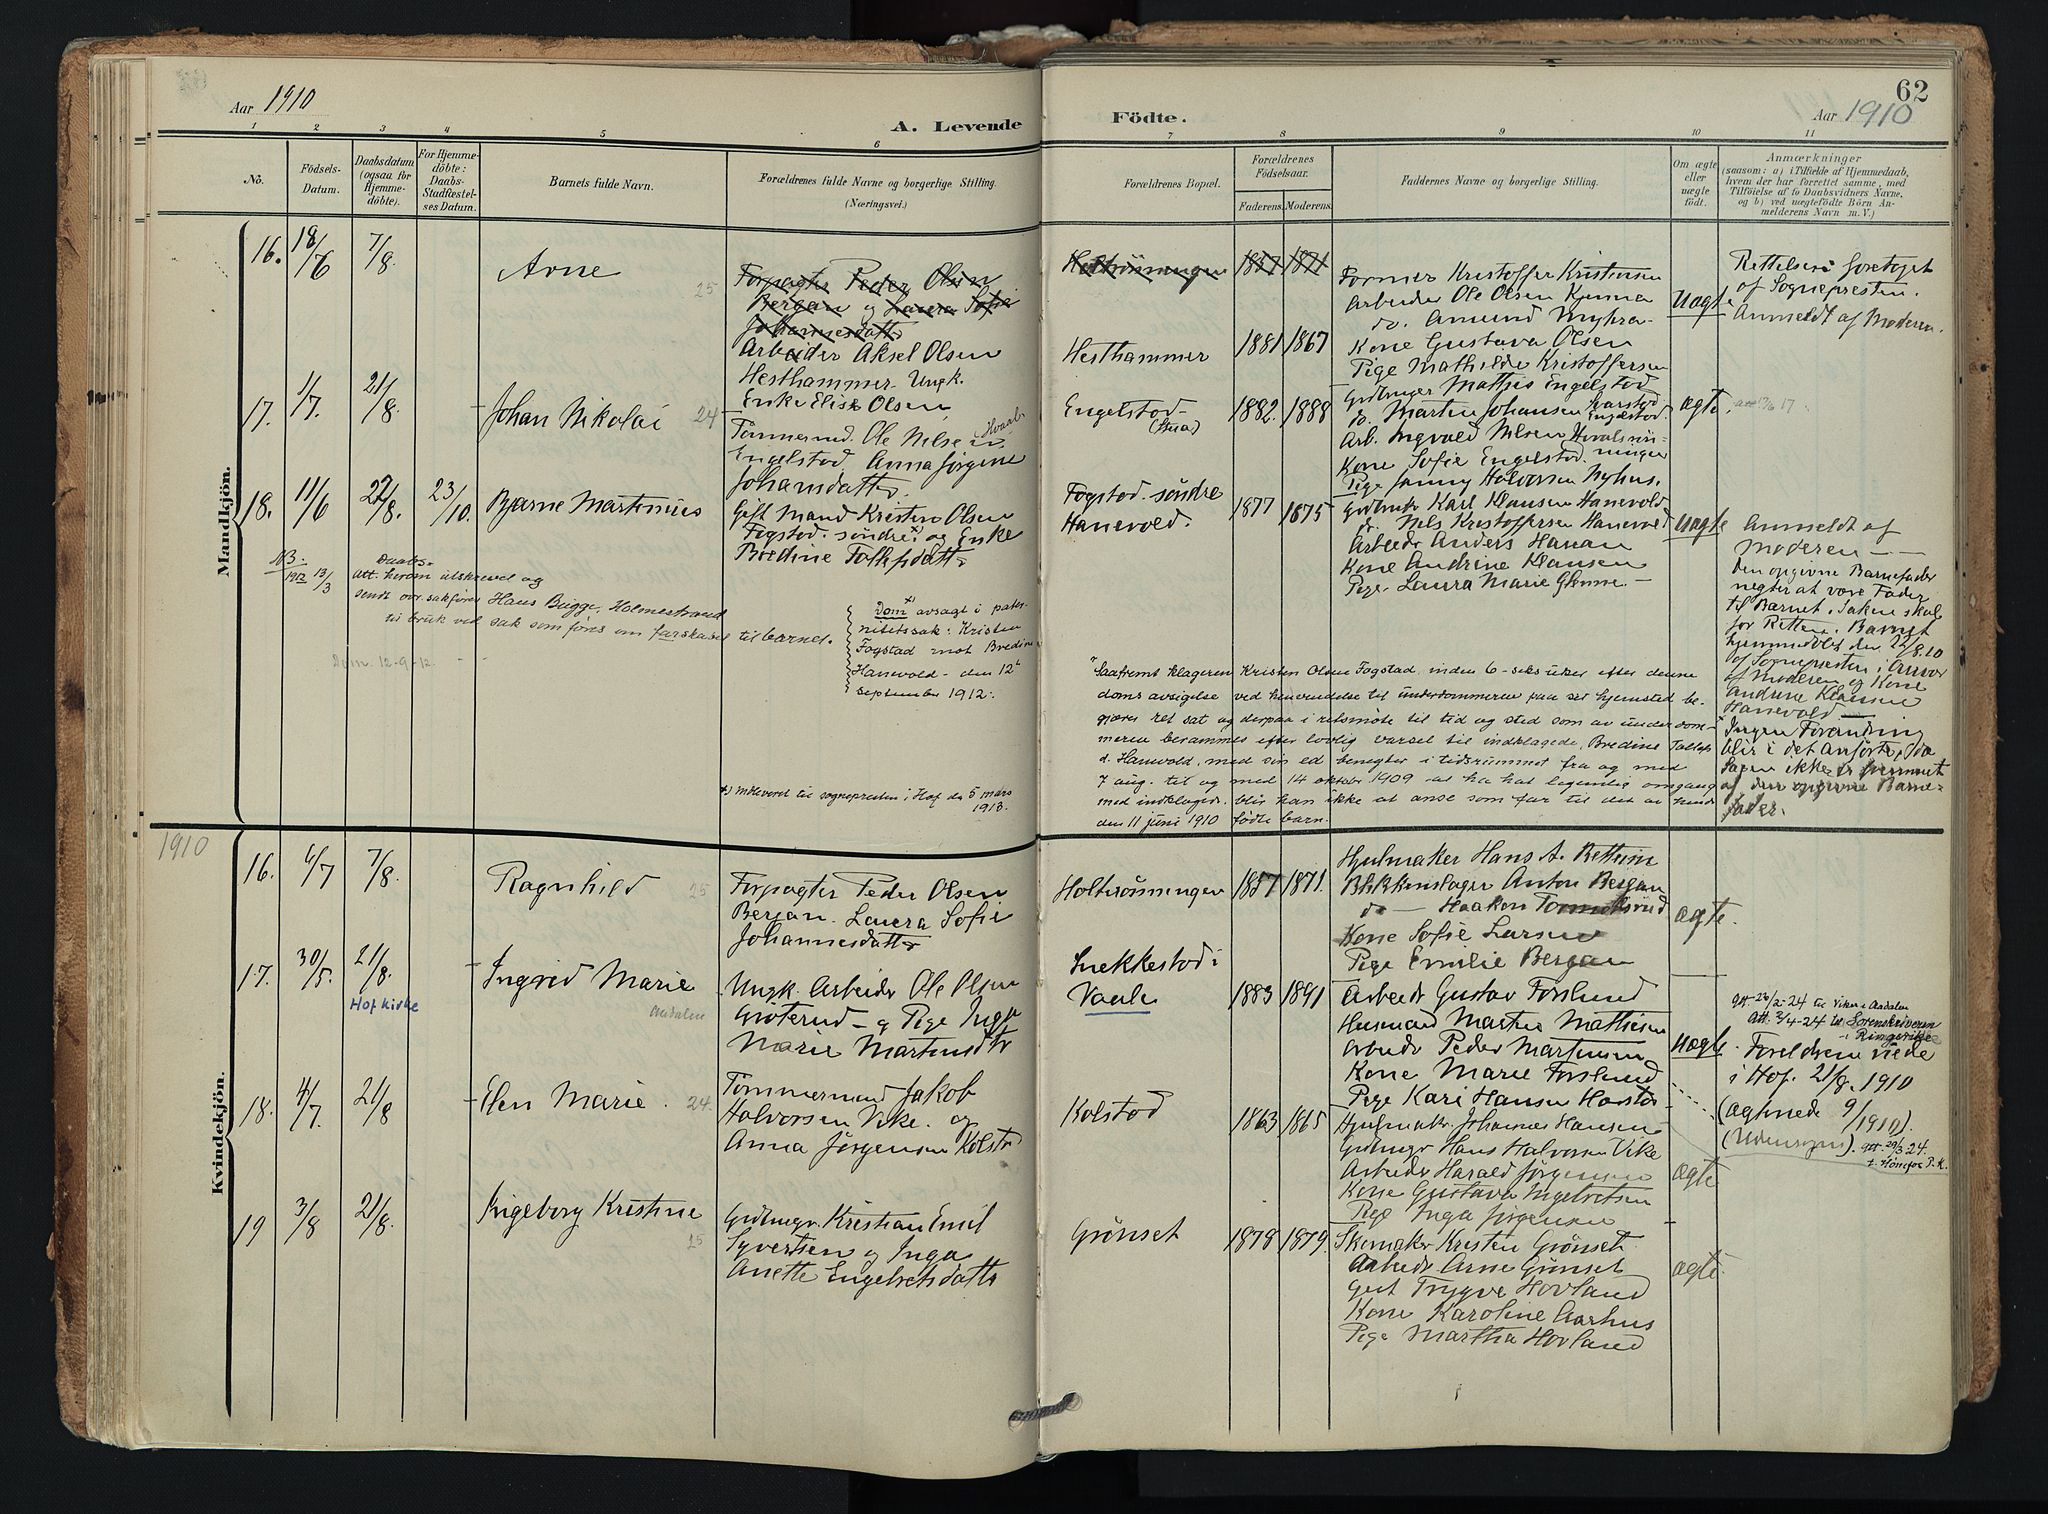 Aar 1910
A. Levende
Födte.
62
Aar 1910
1 2 3 4 5 6 7 8 9 10 11
No.
Födsels-Datum.
Daabsdatum (ogsaa för Hjemmedöbte).
For Hjemmedöbte: Daabs-Stadfæstelses Datum.
Barnets fulde Navn.
Forældrenes fulde Navne og borgerlige Stilling.
(Næringsvei.)
Forældrenes Bopæl.
Forældrenes Födselsaar.
Faderens. Moderens.
Faddernes Navne og borgerlige Stilling.
Om ægte eller uægte födt.
Anmærkninger
(saasom: a) i Tilfælde af Hjemmedaab,
hvem der har forrettet samme, med
Tilföielse af to Daabsvidners Navne,
og b) ved uægtefödte Börn Anmelderens Navn m. V.)
Mandkjön.
16. 18/6 7/8 Arne 25
Forpagter Peder Olsen
Bergan og Laura Sofie
Johannesdatter
Arbeider Aksel Olsen
Hesthammer Ungk.
Enke Elise Olsen
Holtrönningen 1857 1871
Hesthammer 1881 1867
Kristoffer Kristensen
Arbeider Ole Olsen
do. Amund Myhra
Kone Gustava Olsen
Pige Mathilde Kristoffersen
Uægte
Rettelser foretaget
af Sognepresten.
Anmeldt af Moderen.
17. 1/7. 21/8. Johan Nikolai 24
Tömmermd. Ole Nilsen
Engelstad. Anna Jörgine
Johansdatter.
Engelstad
(Stua)
1882. 1888
Gdbruger Mathis Engelstad
do. Martin Johansen
Engelstad
Arb. Ingvald Nilsen
Kone Sofie Engelstad.
Pige Jenny Halvorsen Nyhus.
ægte.
18. 11/6 27/8. 23/10. Bjarne Martinius
Gift Mand Kristen Olsen
Fogstad söndre og Enke
Bredine
Fogstad söndre
Hanevold.
1877 1875
Gdbruker Karl Klausen Hanevold
d. Nils Kristoffersen Hanevold
Arbeider Anders Hanan
Kone Andrine Klausen
Pige Laura Marie
Uægte
Anmeldt af
Moderen
Den opgivne Barnefader
negter at være Fader
til Barnet. Saken skal
for Retten. Barnet
hjemmedöbt den 22/8.10
af Sognepresten i
af Moderen og Kone
Andrine Klausen
Hanevold
Ingen Forandring
blir i det anförte, da
Sagen ikke er fremmet
af den opgivne Barnefader.
NB
1912 13/3
Daabs-
att. herom utskrevet og
sendt ovr. sakförer Hans Bugge, Holmestrand
til bruk ved sak som föres om farskapet til barnet.
Dom. 12-9-12.
Dom x) avsagt i paternitetssak:
Kristen
Fogstad mot Bredine
Hanevold den 12te
september 1912.
x) Meddelt til sognepresten i Hof den 5 mars
1913.
"Saafremt klageren Kristen Olsen Fogstad inden 6 seks uker efter denne
doms avsigelse ved henvendelse til underdommeren paa sit hjemsted begjærer
ret sat og derpaa i retsmöte til tid og sted som av underdommeren
berammes efter lovlig varsel til indklagede, Bredine
d. Hanevold, med sin ed benegter i tidsrummet fra og med
7 aug. til og med 14 oktober 1909 at ha hat legemlig omgang
med indklagede blir han ikke at anse som far til det av hende
den 11 juni 1910 födte barn.
1910
Kvindekjön.
16. 6/7 7/8. Ragnhild 25
Forpagter Peder Olsen
Bergan. Laura Sofie
Johannesdatter
Holtrönningen 1857 1871.
Hjulmaker Hans A. Bettum
Blikkenslager Anton Bergan
do Haakon
Kone Sofie Larsen
Pige Emilie Bergan
ægte.
17. 30/5. 21/8.
Hof kirke
Ingrid Marie
Aadalen
Ungk. Arbeider Ole Olsen
Gröterud og Pige Inga
Marie Martinsdtr
Snekkestad i
Vaale
1883 1891
Arbeider Gustav Forslund
Husmand Martin Mathisen
Arbeider Peder Martinsen
Kone Marie Forslund
Pige Kari Hansen
Uægte.
Att. 26/2-24 til Viker i Aadalen
Att. 3/4-24 til Sorenskriveren
i Ringerike
Foreldrene viede
i Hof. 21/8. 1910
(Ægtviede 9/1910).
(Udensogns). Att. 29/3 24.
t. Hönefos P.K.
18. 4/7. 21/8 Elen Marie. 24.
Tömmermand Jakob
Halvorsen Vike og
Anna Jörgensen Kolstad
Kolstad 1863 1865
Hjulmaker Johannes Hansen
Gdbrugr Hans Halvorsen Vike
Arbeider Harald Jörgensen
Kone Gustava Ingebretsen
Pige Inga Jörgensen
ægte
19 3/8 21/8. Ingeborg Kristine 25
Gdbrugr. Kristian Emil
Syvertsen og Inga
Anette Engebretsdatter
Grönset 1878 1879.
Skomaker Kristen Grönset
Arbeider Arne Grönset
Gut Trygve Hovland
Kone Karoline Aarhus
Pige Martha Hovland
ægte.